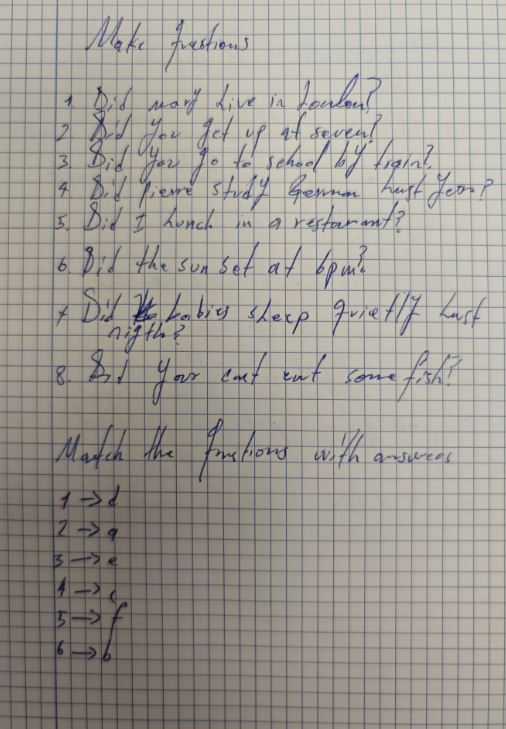 Make questions
1. Did mary live in london?
2. Did you get up at seven?
3. Did you go to school by train?
4. Did pierre study German last year?
5. Did I lunch in a restaurant?
6. Did the sun set at 6pm?
7 Did babies sleep quietly last
nigth?
8. Did your cat eat some fish?
Match the questions with answers
1 → d
2 → a
3 → e
4 → c
5 → f
6 → b